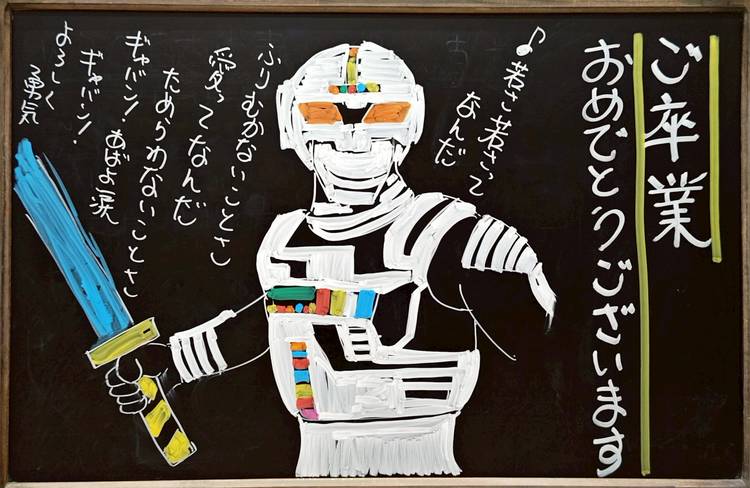 ご卒業
おめでとうございます
♪若さ若さって
なんだ
ふりむかないことさ
愛ってなんだ
ためらわないことさ
ギャバン!あばよ涙
ギャバン!
よろしく
勇気